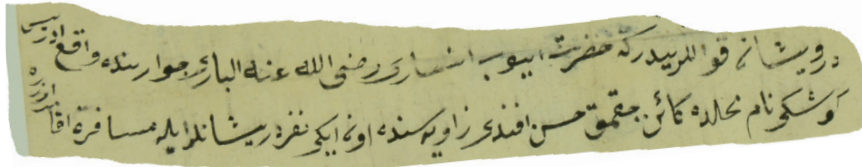 درويشانه قوللريدركه حضرت ايوب انصارى رضى الله عنه البارى جوارنده واقع ادريس
كوشكى نام محلده كائن چقمق حسن افندى زاويه سنده اون ايكى نفر درويشانلر ايله مسافرة اقامت اوزره